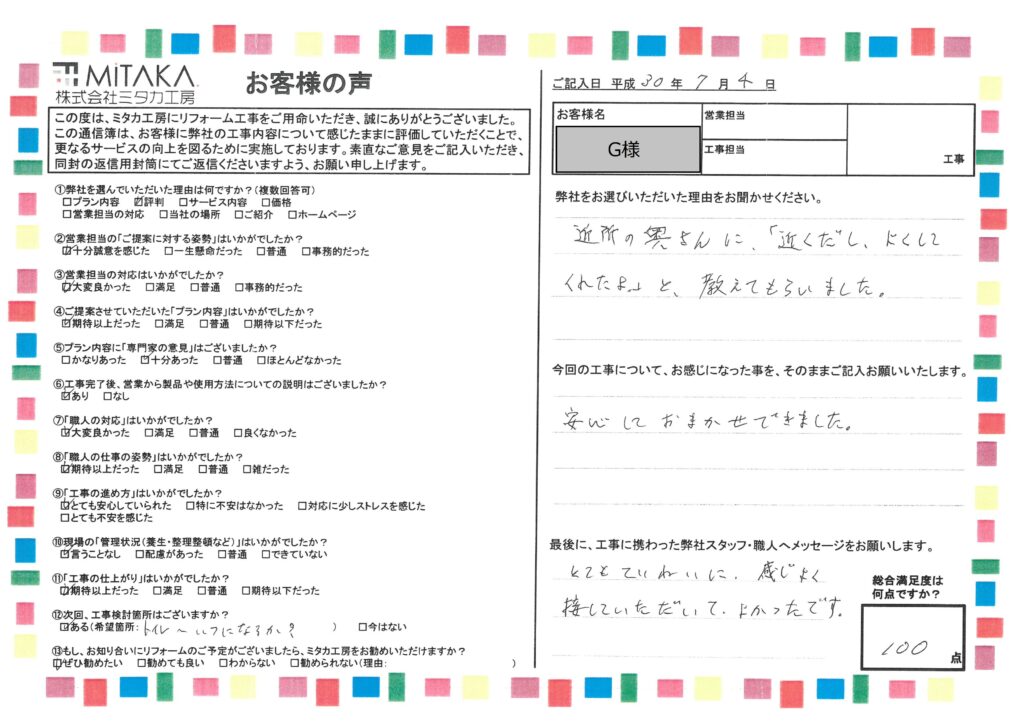 MiTAKA
株式会社ミタカ工房
お客様の声
この度は、ミタカ工房にリフォーム工事をご用命いただき、誠にありがとうございました。
この通信簿は、お客様に弊社の工事内容について感じたままに評価していただくことで、
更なるサービスの向上を図るために実施しております。素直なご意見をご記入いただき、
同封の返信用封筒にてご返信くださいますよう、お願い申し上げます。
①弊社を選んでいただいた理由は何ですか？(複数回答可)
□プラン内容 ☑評判 □サービス内容 □価格
□営業担当の対応 □当社の場所 □ご紹介 □ホームページ
②営業担当の「ご提案に対する姿勢」はいかがでしたか？
☑十分誠意を感じた □一生懸命だった □普通 □事務的だった
③営業担当の対応はいかがでしたか？
☑大変良かった □満足 □普通 □事務的だった
④ご提案させていただいた「プラン内容」はいかがでしたか？
☑期待以上だった □満足 □普通 □期待以下だった
⑤プラン内容に「専門家の意見」はございましたか？
□かなりあった ☑十分あった □普通 □ほとんどなかった
⑥工事完了後、営業から製品や使用方法についての説明はございましたか？
☑あり □なし
⑦「職人の対応」はいかがでしたか？
☑大変良かった □満足 □普通 □良くなかった
⑧「職人の仕事の姿勢」はいかがでしたか？
☑期待以上だった □満足 □普通 □雑だった
⑨「工事の進め方」はいかがでしたか？
☑とても安心していられた □特に不安はなかった □対応に少しストレスを感じた
□とても不安を感じた
⑩現場の「管理状況(養生・整理整頓など)」はいかがでしたか？
☑言うことなし □配慮があった □普通 □できていない
⑪「工事の仕上がり」はいかがでしたか？
☑期待以上だった □満足 □普通 □期待以下だった
⑫次回、工事検討箇所はございますか？
☑ある(希望箇所:トイレ〜いつになるか？ ) □今はない
⑬もし、お知り合いにリフォームのご予定がございましたら、ミタカ工房をお勧めいただけますか？
☑ぜひ勧めたい □勧めても良い □わからない □勧められない(理由: )
ご記入日 平成 30 年 7 月 4 日
お客様名
G様
営業担当
工事担当
工事
弊社をお選びいただいた理由をお聞かせください。
近所の奥さんに、「近くだし、よくして
くれたよ。」と、教えてもらいました。
今回の工事について、お感じになった事を、そのままご記入お願いいたします。
安心しておまかせできました。
最後に、工事に携わった弊社スタッフ・職人へメッセージをお願いします。
とてもていねいに、感じよく
接していただいて、よかったです。
総合満足度は
何点ですか？
100 点